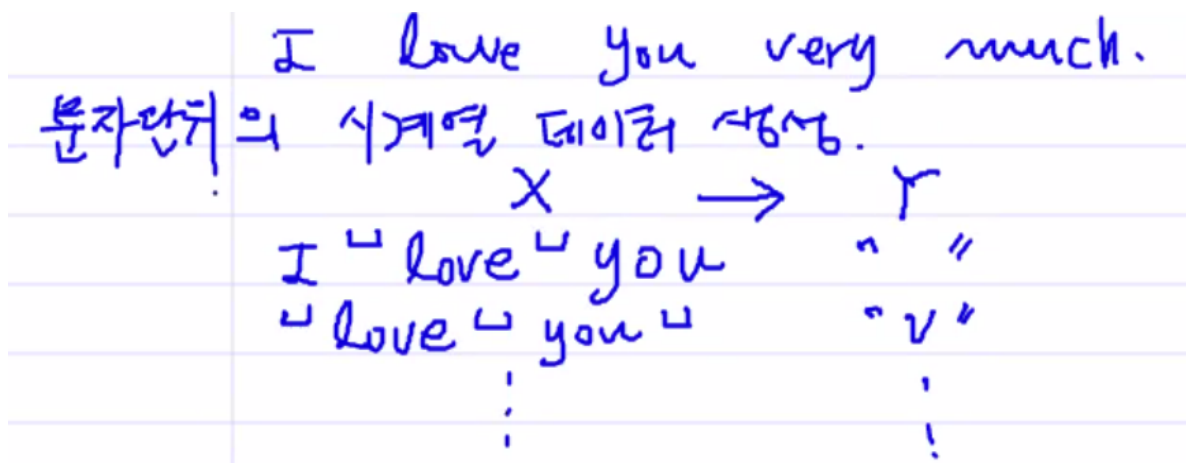 I love you very much.
문자단위의 시계열 데이터 생성.
X → Y
I␣love␣you " "
␣love␣you␣ "v"